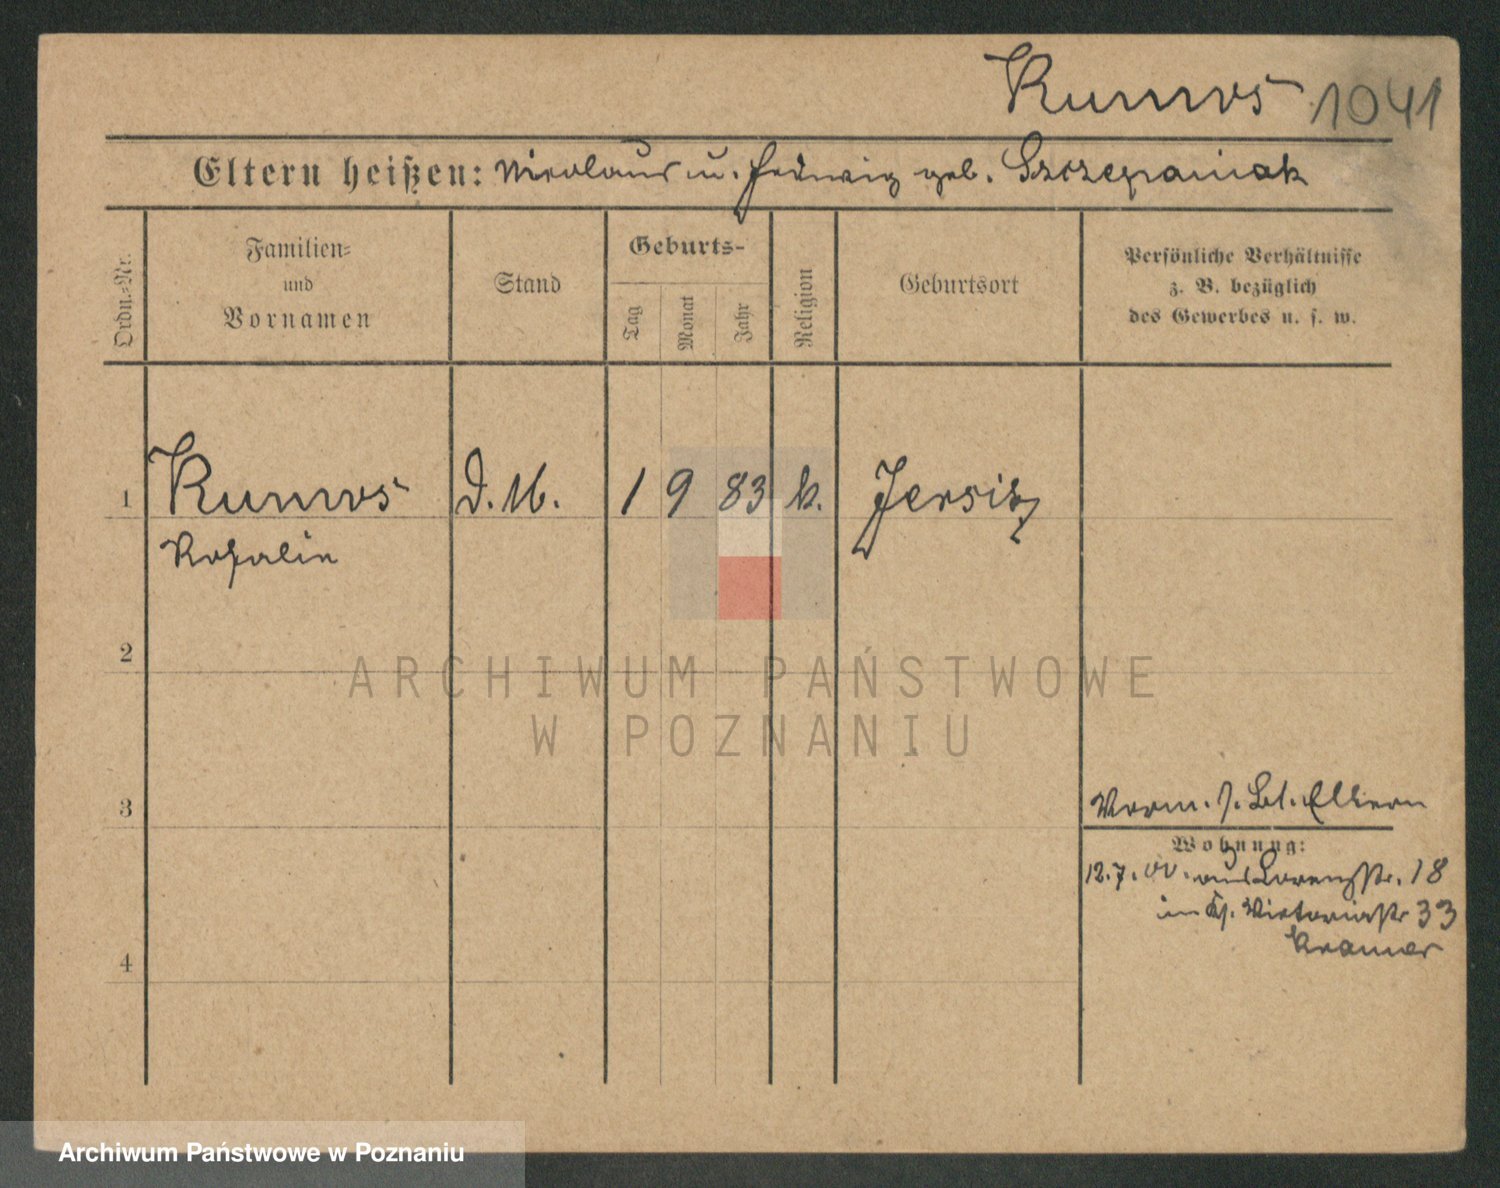 Kumos 1041
Eltern heißen: Nicolaus u. Hedwig geb. Szczepaniak
Ordn.-Nr.
Familien-
und
Vornamen
Stand
Geburts-
Tag
Monat
Jahr
Religion
Geburtsort
Persönliche Verhältnisse
z. B. bezüglich
des Gewerbes u. s. w.
1 D. M. 1 9 83 k. Jersitz
Rosalie
2
ARCHIWUM PAŃSTWOWE
W POZNANIU
3
Vorm. s. Bl. Eltern
Wohnung:
12.7.00. aus Lorenzstr. 18
im Viktoriastr 33
Kramer
4
Archiwum Państwowe w Poznaniu